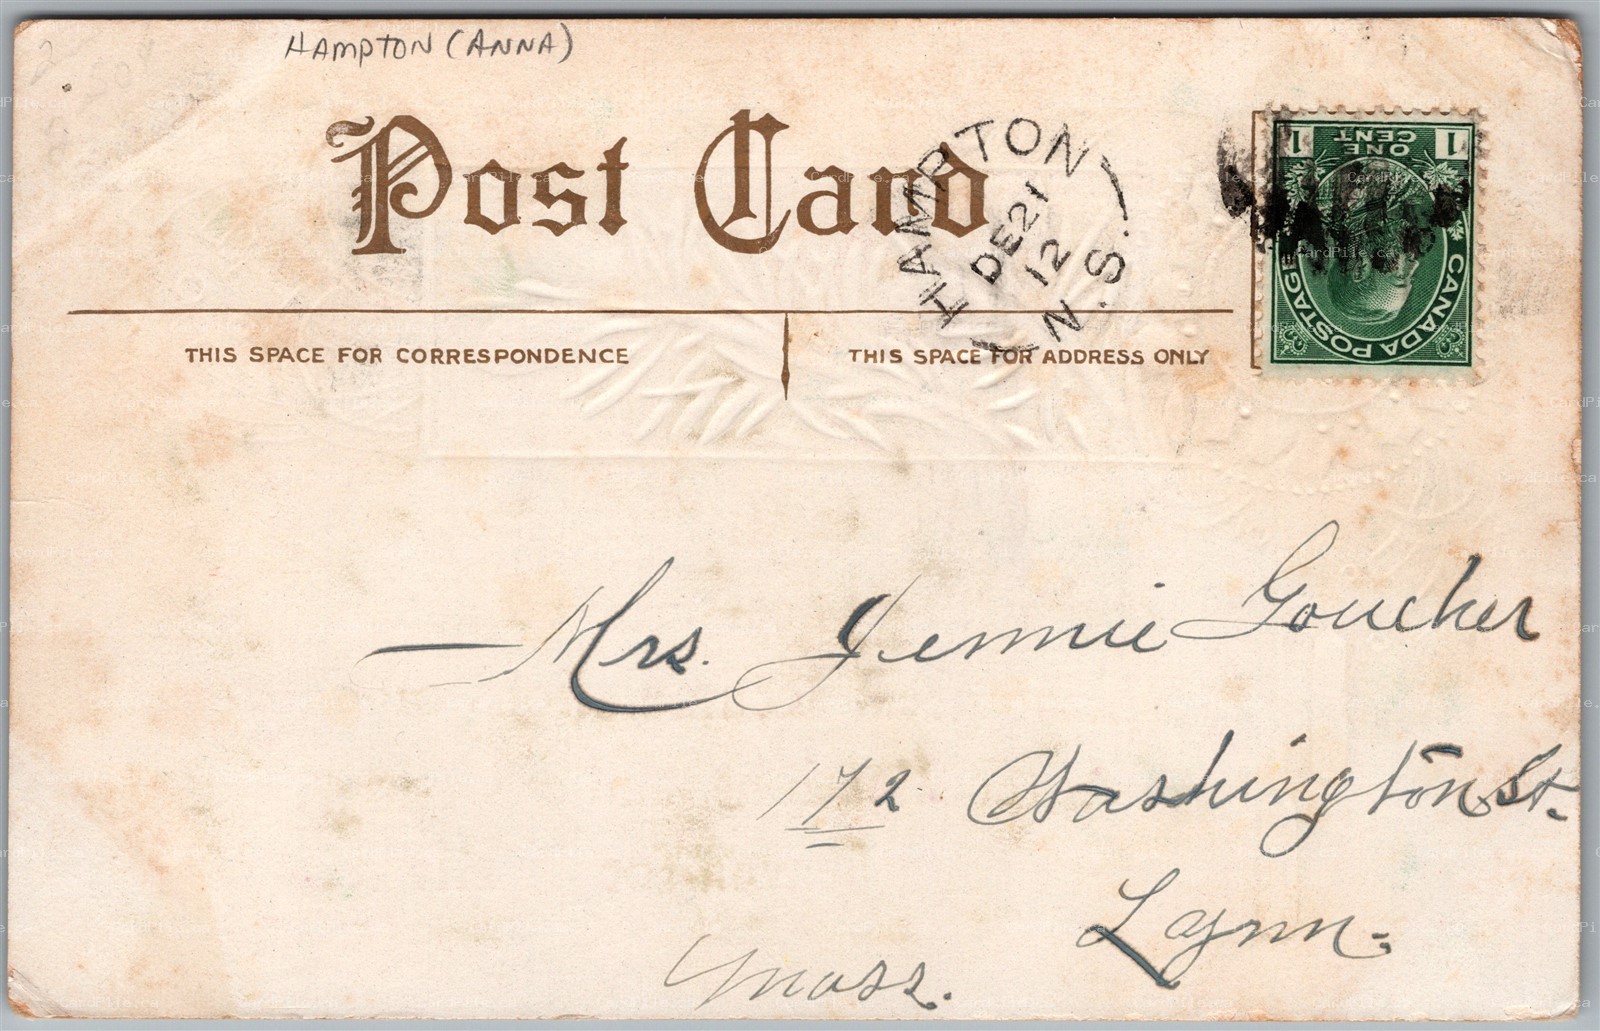 HAMPTON (ANNA)
Post Card
HAMPTON
DE 21
12
N.S.
1 ONE CENT 1
CANADA POSTAGE
THIS SPACE FOR CORRESPONDENCE
THIS SPACE FOR ADDRESS ONLY
Mrs. Jennie Goucher
172 Washington St.
Lynn.
Mass.
CardPile.ca